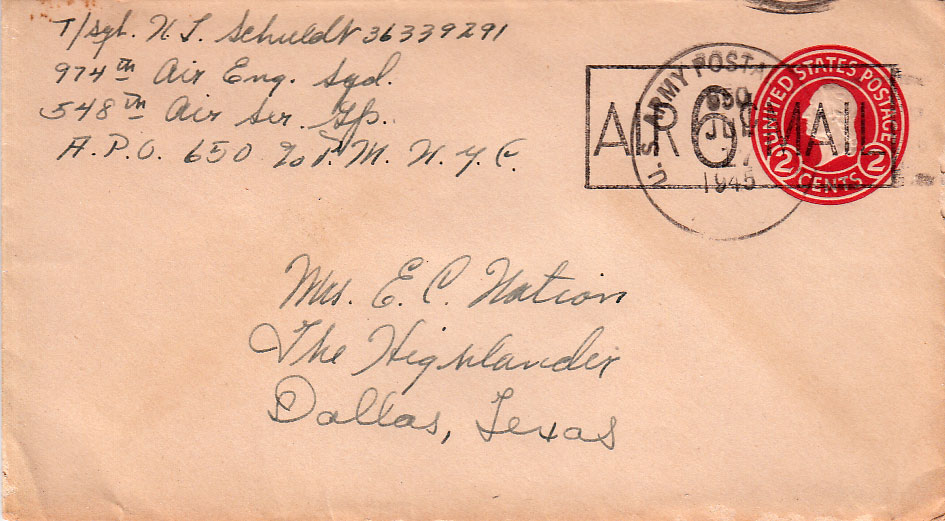 T/Sgt. N. J. Schuldt 36339291
974th Air Eng. Sqd.
548th Air Ser. Gp.
A.P.O. 650 % P. M. N. Y. C.
U.S. ARMY POSTA
650
27
1945
AIR 6¢ MAIL
UNITED STATES POSTAGE
2 CENTS 2
Mrs. E. C. Nation
The Highlander
Dallas, Texas